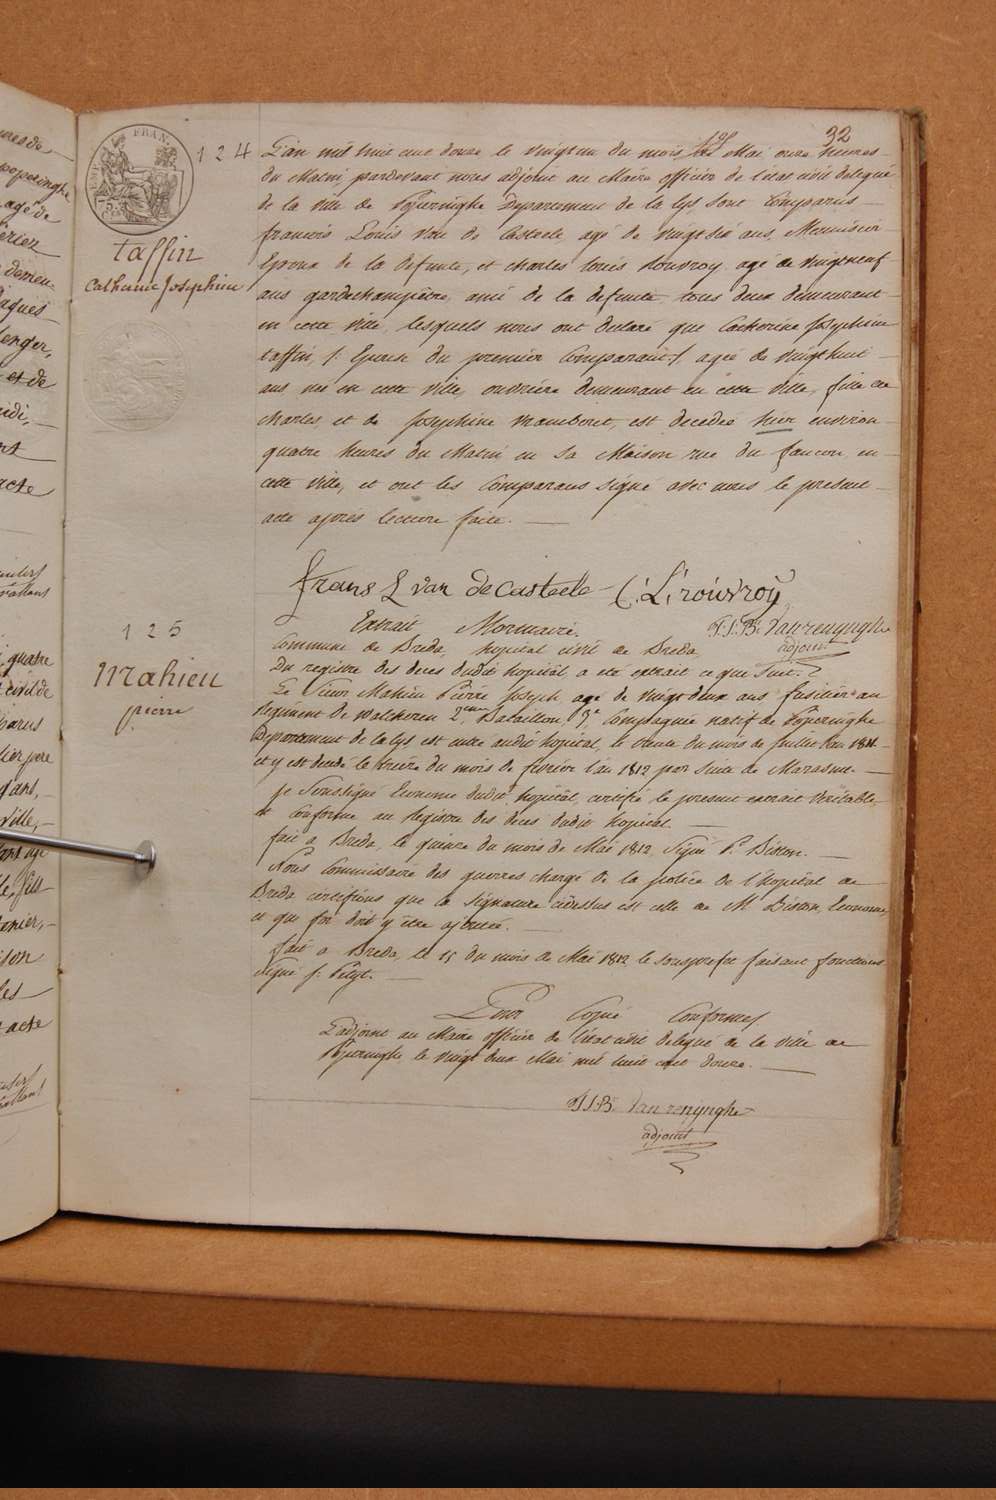 32
124
taffin
catherine Josephine
L'an mil huit cent douze le vingt un du mois de Mai onze heures
du Matin, pardevant nous adjoint au Maire officier de l'etat civil delegué
de la ville de Poperinghe Departement de la Lys sont Comparus
francois Louis Van de Casteele, agé de vingt six ans, Menuisier
Epoux de la defunte, et charles Louis Rouvroy agé de vingt neuf
ans gardechampêtre, ami de la defunte, tous deux demeurant
en cette ville, lesquels nous ont declaré que Catherine Josephine
taffin, /: Epouse du premier Comparant :/ agée de vingt huit
ans née en cette ville, ouvrière demeurant en cette ville, fille de
charles, et de Josephine est decedée hier environ
quatre heures du Matin en sa Maison rue du faucon en
cette ville, et ont les Comparans signé avec nous le present
acte après lecture faite.
frans L van de Casteele C: L: rouvroy
P.J.B. Vanrenynghe
adjoint
125
Mahieu
pierre
Extrait Mortuaire.
Commune de Breda, hopital civil de Breda
Du registre des deces dudit hopital a été extrait ce que suit.
Le Sieur Mahieu Pierre Joseph agé de vingt deux ans fusilier au
Regiment de Walcheren 2eme Bataillon, Compagnie natif de Poperinghe
Departement de la Lys est entré audit hopital, le trente du mois de Juillet l'an 1811
et y est decedé le treize du mois de fevrier l'an 1812 par suite de Marasme.
je Soussigné Econome dudit hopital, certifie le present extrait Veritable,
et Conforme au Registre des deces dudit hopital.
fait a Breda, le quinze du mois de Mai 1812, Signé Biston.
Nous Commissaire des guerres chargé de la police de l'hopital de
Breda certifions que la signature cidessus est celle de Mr Biston, Econome,
et que foi doit y être ajoutée.
fait a Breda, le 15 du mois de Mai 1812 le sousprefet faisant fonctions
signé
Pour Copie Conforme
L'adjoint au Maire officier de l'état civil delegué de la ville de
Poperinghe le vingt deux Mai mil huit cent douze.
P.J.B. Vanrenynghe
adjoint